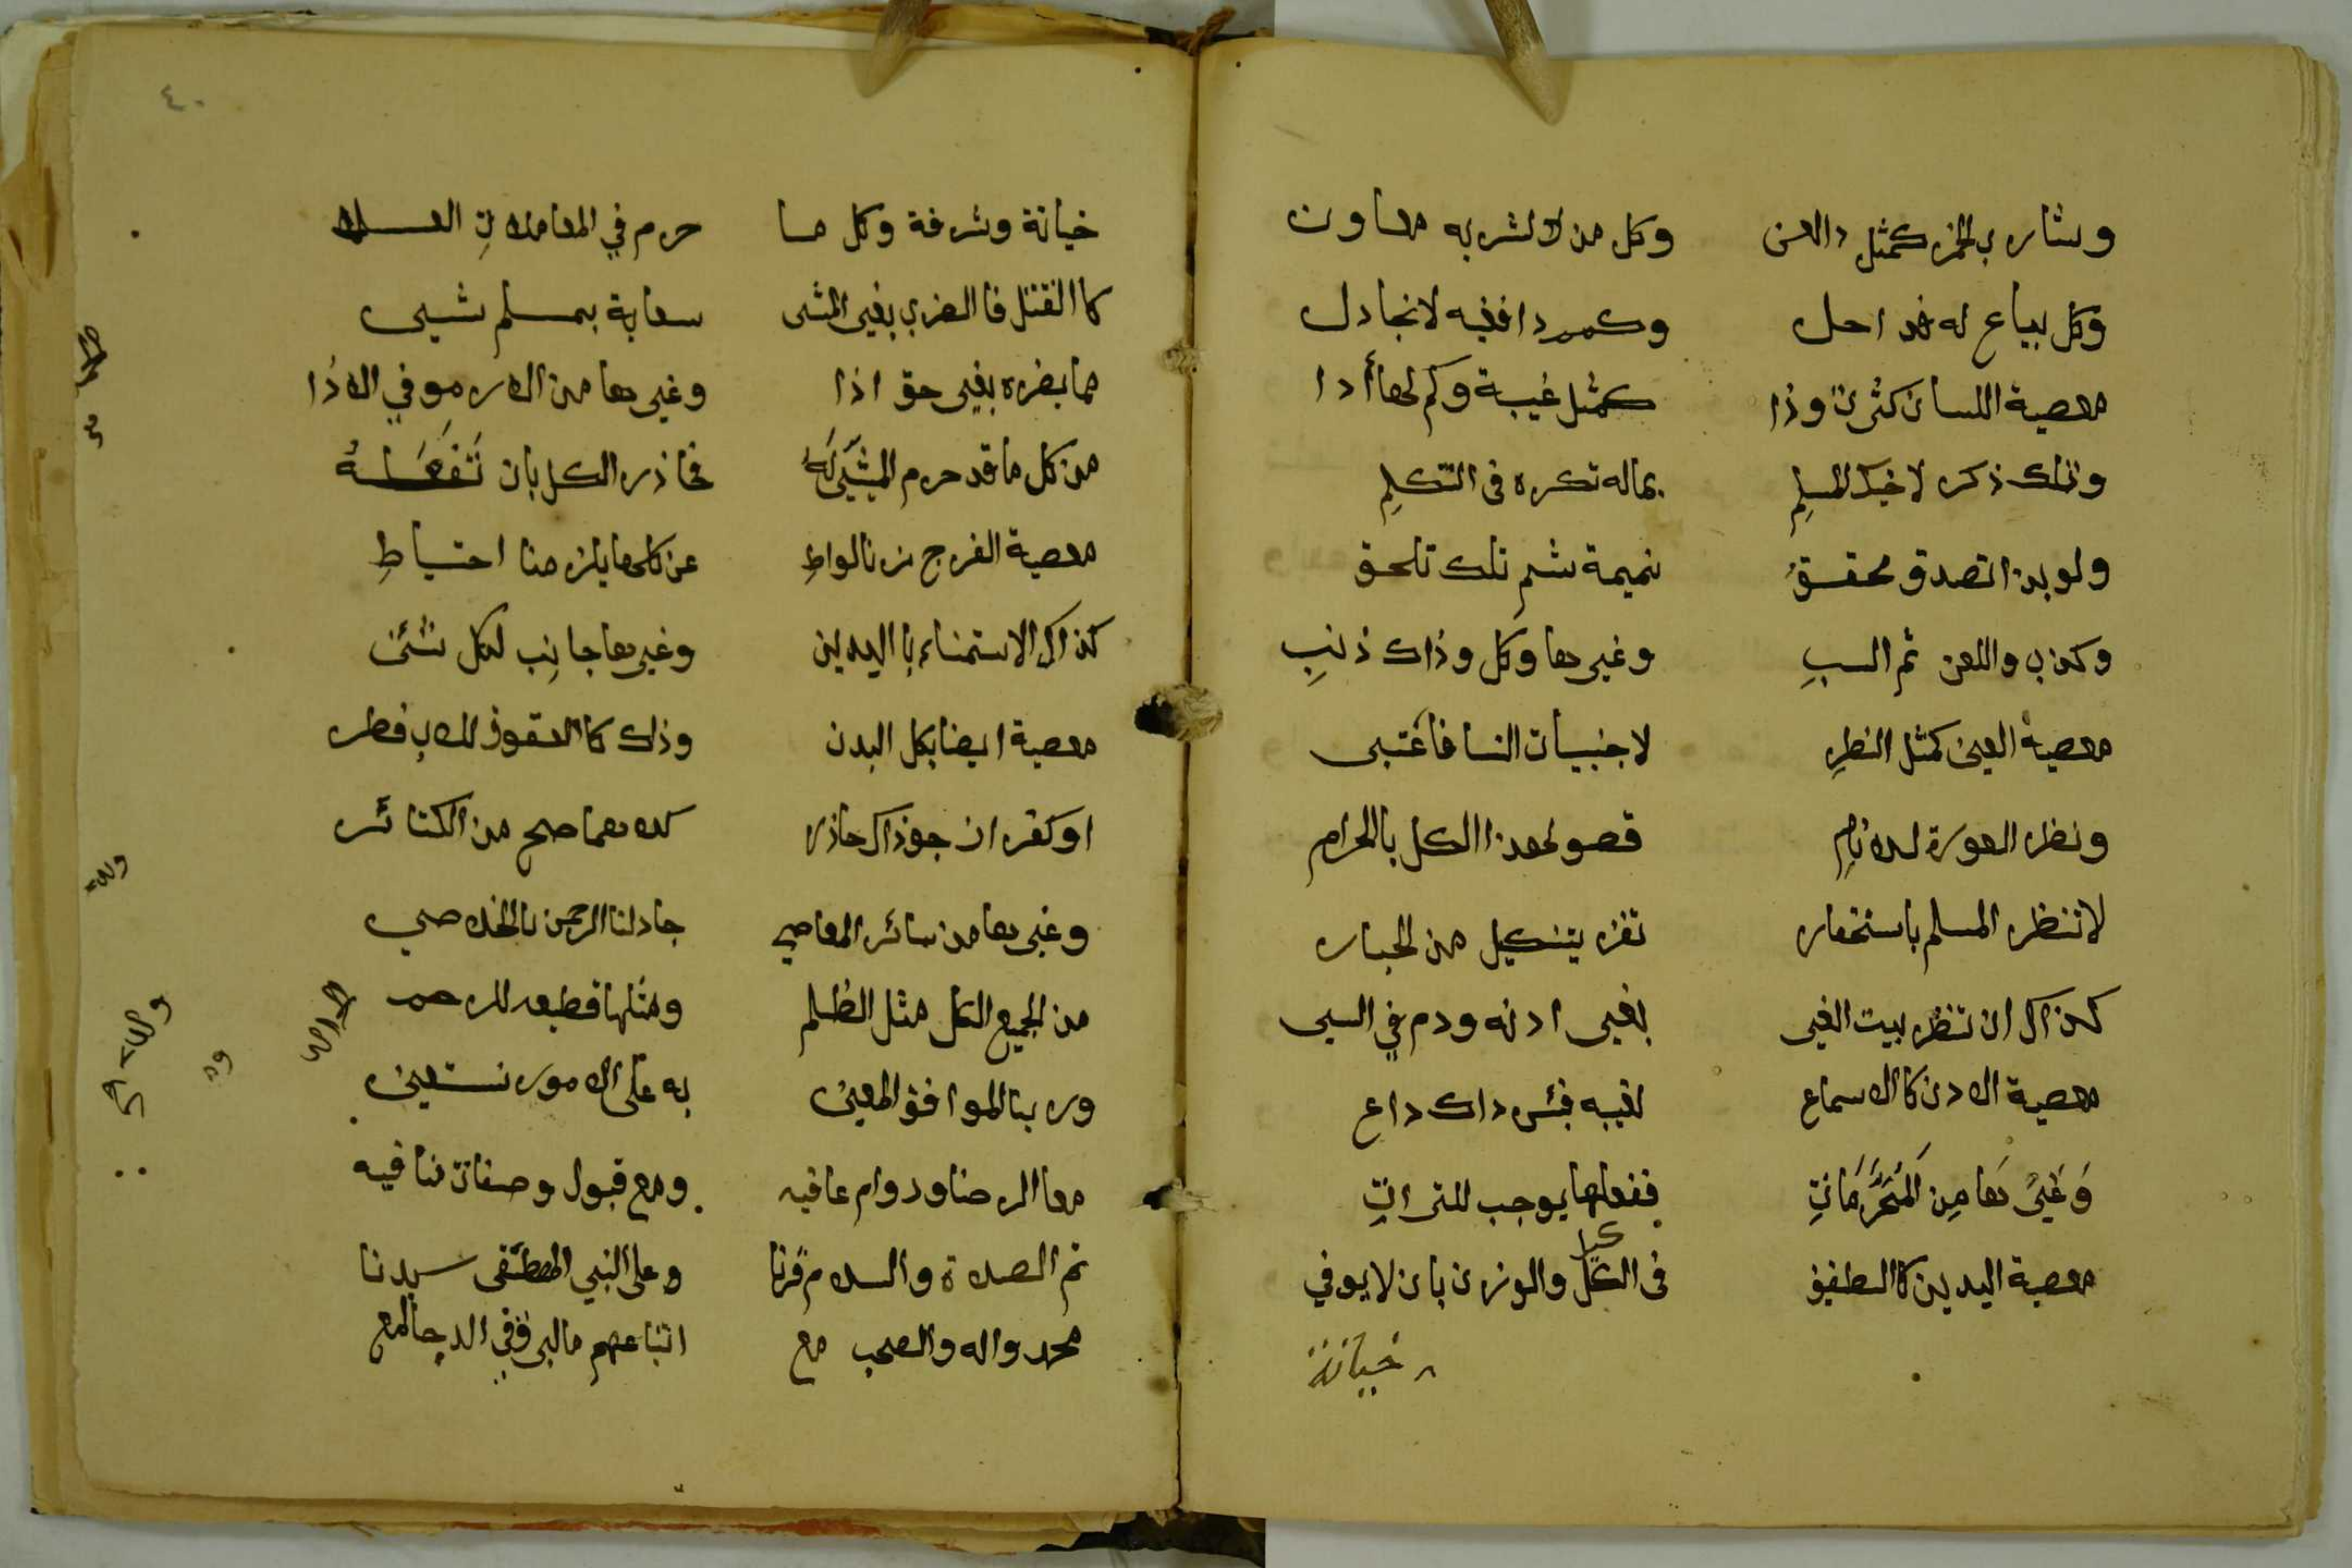 وشارب الخمر كمثل دالعن وكل من لا لشربه معاون
وكل بياع له قد احل وكم دافيه لا تجادل
معصية اللسان كثرت وذا كمثل غيبة وكم لها أدا
وتلك ذكر لاخيك المسلم بماله تكره في التكلم
ولو بذا تصدق محقق نميمة شم تلك تلحق
وكذب واللعن ثم السب وغيرها وكل وذاك ذنب
معصية العين كمثل النظر لاجنبيات النسا فاعتبر
ونظر العورة لله نام فصولهذا الكل بالحرام
لا تنظر المسلم باستحقار تفز بتنكيل من الجبار
كذاك ان تنظر بيت الغير بغير اذنه ودم في السير
معصية الاذن كالاسماع لغيبه فبئس داك داع
وَغَيرُهَا مِن المُحَرَّمَاتِ ففعلها يوجب للتراتِ
معصية اليدين كالطفيف في الكيل والوزن بان لا يوفي
خيانة
٤٠
خيانة وسرقة وكل ما حرم في المعاملات
كالقتل فالضرب بغير المشي سعاية بمسلم بشيء
مما يضره بغير حق اذا وغيرها من الامر موفي الاذا
من كل ما قد حرم المشي له فحاذر الكل بان تفعله
معصية الفرج زنا لواط عن كلها يلزمنا احتياط
كذاك الاستمناء باليدين وغيرها جانب لكل شين
معصية ايضا بكل البدن وذلك كالعقوق للاب
او كفران جوذاك حاذر كلاهما صح من الكبائر
وغيرها من سائر المعاصي جاد لنا الرحمن بالخلاص
من الجميع الكل مثل الظلم ومثلها قطيعه للرحم
وربنا الموافق المعين به على الامور نستعين
مع الرضا ودوام عافيه ومع قبول وصفات
ثم الصلاة والسلام قرنا وعلى النبي المصطفى سيدنا
محمد واله والصحب مع اتباعهم ما البرق في الدجا لمع